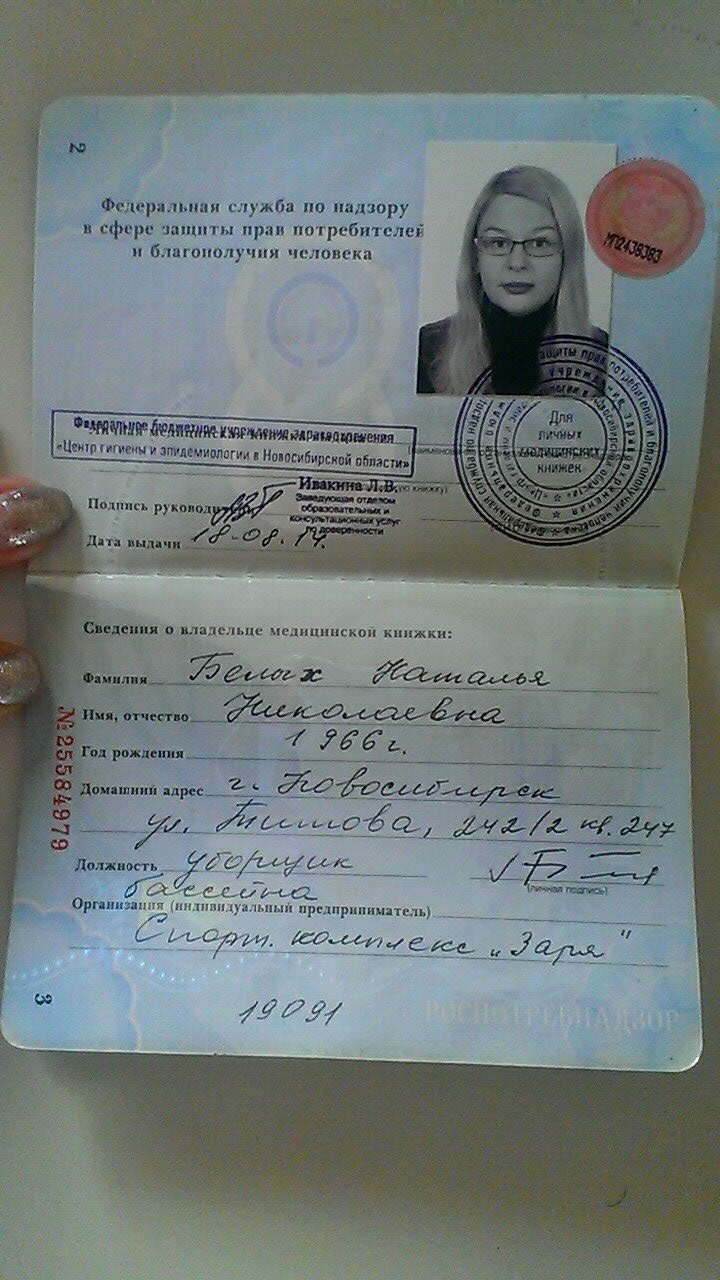 2
Федеральная служба по надзору
в сфере защиты прав потребителей
и благополучия человека
МП2438383
Федеральное бюджетное учреждение здравоохранения
«Центр гигиены и эпидемиологии в Новосибирской области»
Для
личных
медицинских
книжек
Ивакина Л.В.
Заведующая отделом
образовательных и
консультационных услуг
по доверенности
Подпись руководит
Дата выдачи 18-08.14.
Сведения о владельце медицинской книжки:
Фамилия Белых Наталья
Имя, отчество Николаевна
Год рождения 1966 г.
Домашний адрес г. Новосибирск
ул. Титова, 242/2 кв. 247
Должность уборщик
бассейна
(личная подпись)
Организация (индивидуальный предприниматель)
Спорт. комплекс „Заря"
№25584979
3
19091
РОСПОТРЕБНАДЗОР